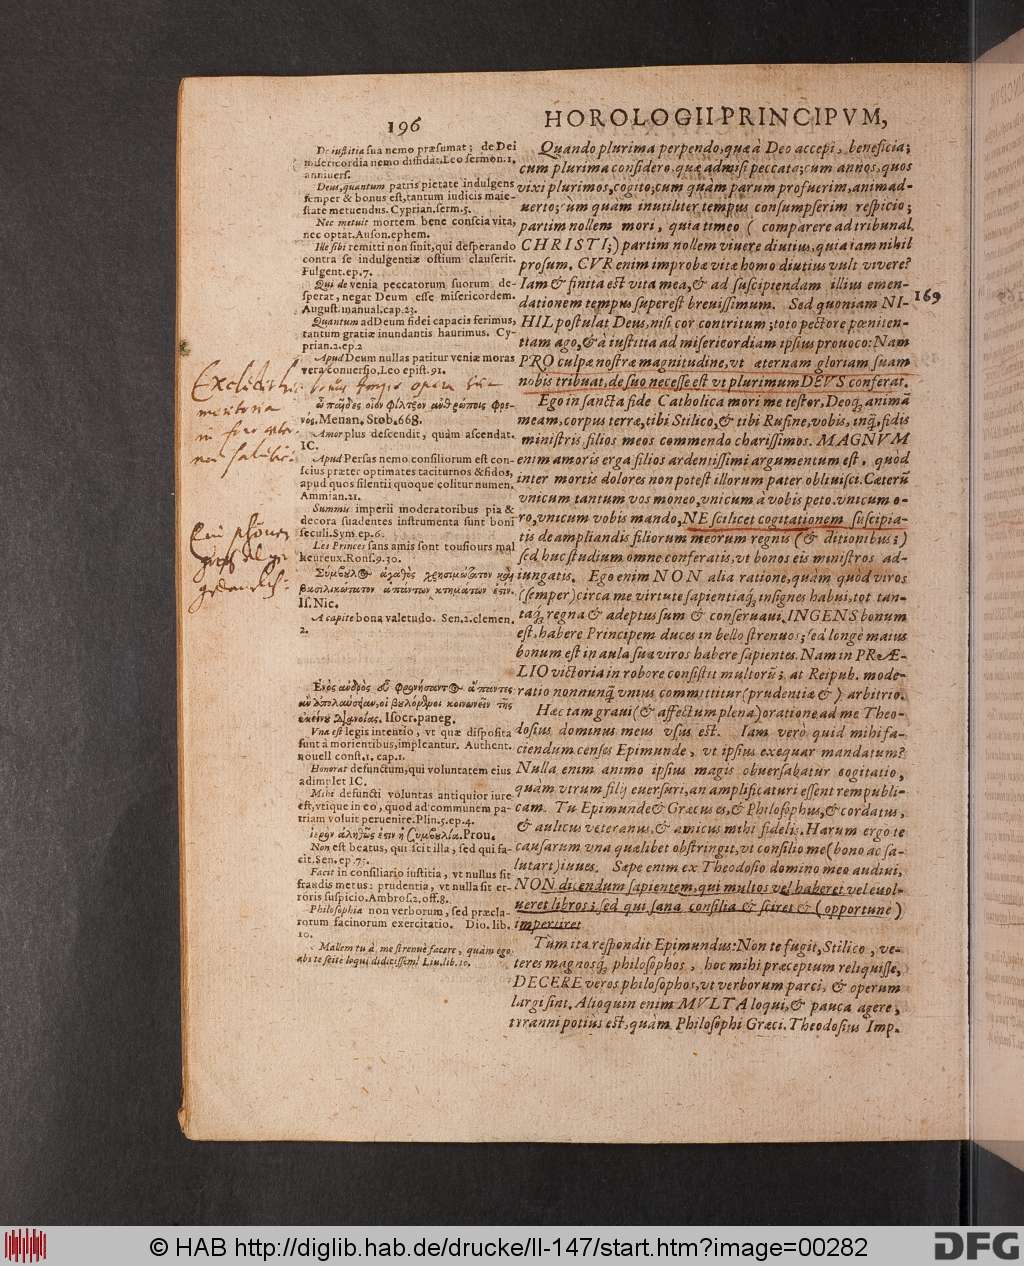 196
HOROLOGII PRINCIPVM,
De iustitia sua nemo præsumat; de Dei
misericordia nemo diffidat. Leo sermon. 1.
annivers.
Deus, quantum patris pietate indulgens
semper & bonus est, tantum iudicis maie-
state metuendus. Cyprian. serm. 5.
Nec metuit mortem bene conscia vita,
nec optat. Auson. ephem.
Ille sibi remitti non sinit, qui desperando
contra se indulgentiæ ostium clauserit.
Fulgent. ep. 7.
Qui de venia peccatorum suorum de-
sperat, negat Deum esse misericordem.
August. manual. cap. 23.
Quantum ad Deum fidei capacis ferimus,
tantum gratiæ inundantis haurimus. Cy-
prian. 2. ep. 2
Apud Deum nullas patitur veniæ moras
vera conuersio. Leo epist. 91.
Menan. Stob. 668.
Amor plus descendit, quàm ascendat.
IC.
Apud Persas nemo consiliorum est con-
scius præter optimates taciturnos & fidos,
apud quos silentii quoque colitur numen.
Ammian. 21.
Summu imperii moderatoribus pia &
decora suadentes instrumenta sunt boni
seculi. Syn. ep. 6.
Les Princes sans amis sont tousiours mal
heureux. Rons. 9. 30.
Is. Nic.
A capite bona valetudo. Sen. 2. clemen.
2.
Isocr. paneg.
Vna est legis intentio, vt quæ disposita
sunt à morientibus, impleantur. Authent.
nouell const. 1. cap. 1.
Honorat defunctum, qui voluntatem eius
adimplet IC.
Mihi defuncti voluntas antiquior iure
est, vtique in eo, quod ad communem pa-
triam voluit peruenire. Plin. 5. ep. 4.
Prou.
Non est beatus, qui scit illa, sed qui fa-
cit. Sen. ep. 75.
Facit in consiliario iustitia, vt nullus sit
fraudis metus: prudentia, vt nulla sit er-
roris suspicio. Ambros. 2. off. 8.
Philosophia non verborum, sed præcla-
rorum facinorum exercitatio. Dio. lib.
10.
Mallem tu à me strenuè facere, quàm ego
abs te scite loqui didicissem! Liu. lib. 10.
Quando plurima perpendo, quæ à Deo accepi, beneficia;
cum plurima considero, quæ admisi peccata; cum annos, quos
vixi plurimos, cogito; cum quàm parum profuerim, animad-
uerto; cùm quàm inutiliter tempus consumpserim respicio;
partim nollem mori, quia timeo ( comparere ad tribunal
CHRISTI;) partim nollem viuere diutius, quia iam nihil
prosum. CVR enim improbæ vitæ homo diutius vult vivere?
Iam & finita est vita mea, & ad suscipiendam illius emen-
dationem tempus superest breuissimum. Sed quoniam NI-
169
HIL postulat Deus, nisi cor contritum; toto pectore pœniten-
tiam ago, & à iustitia ad misericordiam ipsius prouoco: Nam
PRO culpæ nostræ magnitudine, vt æternam gloriam suam
nobis tribuat, de suo necesse est vt plurimum DEVS conferat.
Ego in sancta fide Catholica mori me testor, Deoq́; animã
meam, corpus terræ, tibi Stilico, & tibi Rufine, vobis, inq́;, fidis
ministris, filios meos commendo charissimos. MAGNVM
enim amoris erga filios ardentissimi argumentum est, quòd
inter mortis dolores non potest illorum pater obliuisci. Cæterũ
vnicum tantum vos moneo, vnicum à vobis peto, vnicum o-
ro, vnicum vobis mando, NE scilicet cogitationem suscipia-
tis de ampliandis filiorum meorum regnis (& ditionibus;)
sed huc studium omne conferatis, vt bonos eis ministros ad-
iungatis. Ego enim NON alia ratione, quàm quòd viros
(semper) circa me virtute sapientiaq́; insignes habui, tot tan-
taq́; regna & adeptus sum & conseruaui. INGENS bonum
est, habere Principem duces in bello strenuos; sed longè maius
bonum est in aula sua viros habere sapientes. Nam in PRÆ-
LIO victoria in robore consistit multorũ; at Reipub. mode-
ratio nonnunq̃ vnius committitur (prudentiæ &) arbitrio.
Hæc tam graui (& affectum plena) oratione ad me Theo-
dosius dominus meus vsus est. Iam verò quid mihi fa-
ciendum censes Epimunde, vt ipsius exequar mandatum?
Nulla enim animo ipsius magis obuersabatur cogitatio,
quàm vtrum filij euersuri, an amplificaturi essent rempubli-
cam. Tu Epimunde & Græcus es, & Philosophus, & cordatus,
& aulicus veteranus, & amicus mihi fidelis. Harum ergo te
causarum vna quælibet obstringit, vt consilio me (bono ac sa-
lutari) iuues. Sæpe enim ex Theodosio domino meo audiui,
NON dicendum sapientem, qui multos vel haberet vel euol-
ueret libros; sed qui sana consilia & sciret & (opportunè)
impertiret
Tum ita respondit Epimundus: Non te fugit, Stilico, ve-
teres magnosq́; philosophos, hoc mihi præceptum reliquisse,
DECERE veros philosophos, vt verborum parci, & operum
largi sint. Alioquin enim MVLTA loqui, & pauca agere,
tyranni potiùs est, quàm Philosophi Græci. Theodosius Imp.
© HAB http://diglib.hab.de/drucke/ll-147/start.htm?image=00282
DFG